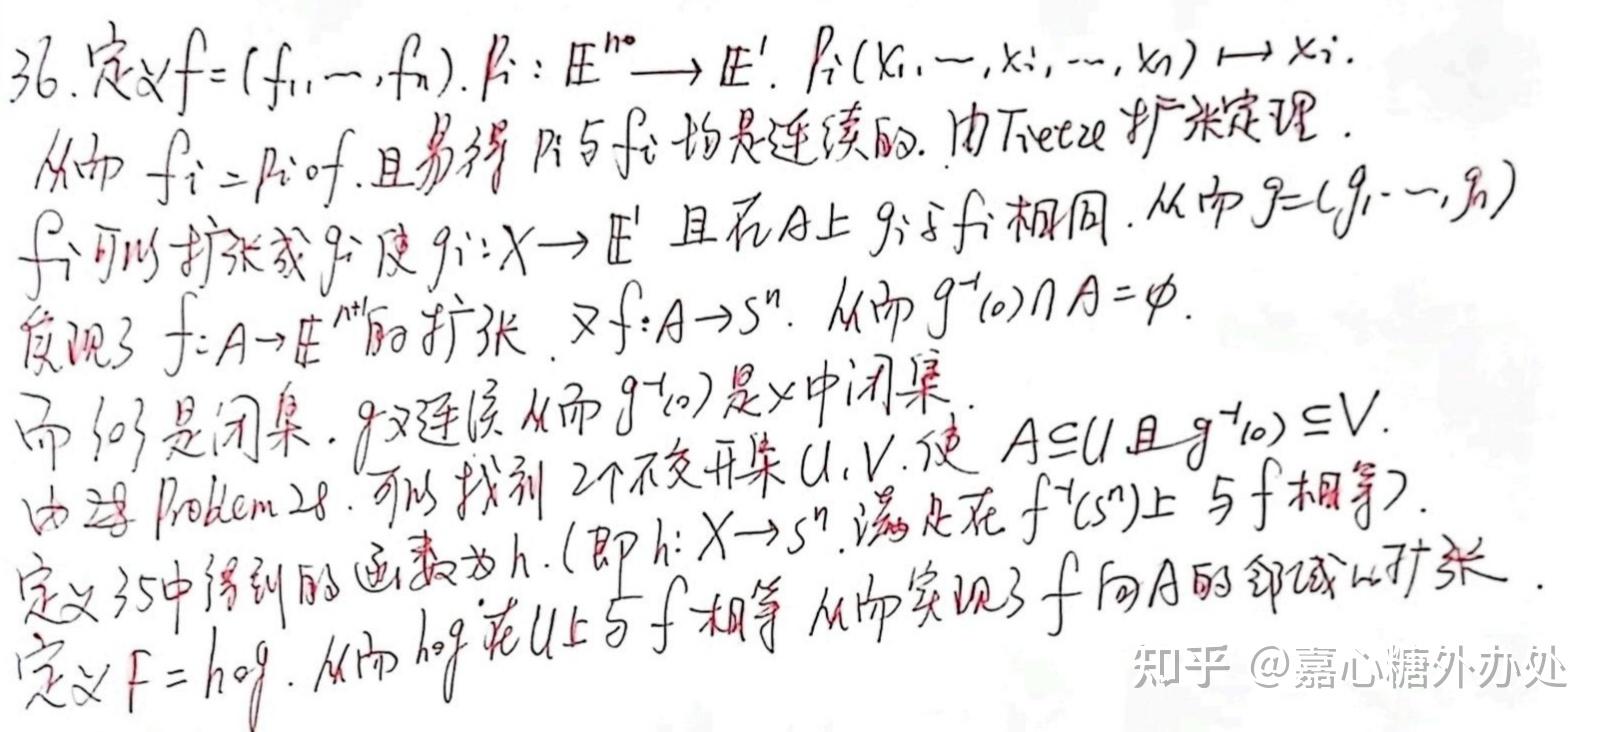 36. 定义f=(f₁,…,fₙ). Pᵢ: 𝔼ⁿ⁺¹→𝔼¹. Pᵢ(x₁,…,xᵢ,…,xₙ)↦xᵢ.
从而 fᵢ=Pᵢ∘f. 且易得 Pᵢ与fᵢ均是连续的. 由Tietze扩张定理.
fᵢ可以扩张成gᵢ使gᵢ:X→𝔼¹ 且在A上gᵢ与fᵢ相同. 从而g=(g₁,…,gₙ)
实现了 f:A→𝔼ⁿ⁺¹的扩张. 又f:A→Sⁿ. 从而g⁻¹(0)∩A=φ.
而{0}是闭集. g又连续 从而g⁻¹(0)是X中闭集.
由 Problem 28. 可以找到2个不交开集U,V. 使 A⊆U且g⁻¹(0)⊆V.
定义35中得到的函数为h.(即h:X→Sⁿ.满足在f⁻¹(Sⁿ)上与f相等).
定义F=h∘g. 从而h∘g在U上与f相等 从而实现了f向A的邻域的扩张.
知乎 @嘉心糖外办处